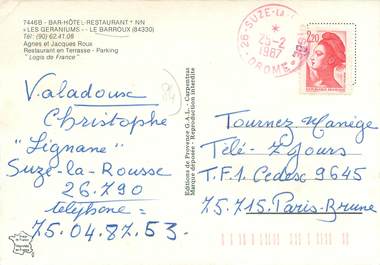 7446B - BAR-HÔTEL-RESTAURANT * NN
« LES GERANIUMS » - LE BARROUX (84330)
Tél: (90) 62.41.08
Agnès et Jacques Roux
Restaurant en Terrasse - Parking
"Logis de France"
Valadoux
Christophe
"Lignane"
Suze-la-Rousse
26.790
téléphone =
75.04.87.53.
84
Editions de Provence G.A.L. - Carpentras
Marque déposée - Reproduction interdite
26-SUZE-LA-
25-2
1987
DROME
2,20
Tournez Manège
Télé-7 Jours
T.F.1 Cedex 9645
75.715.Paris-Brune